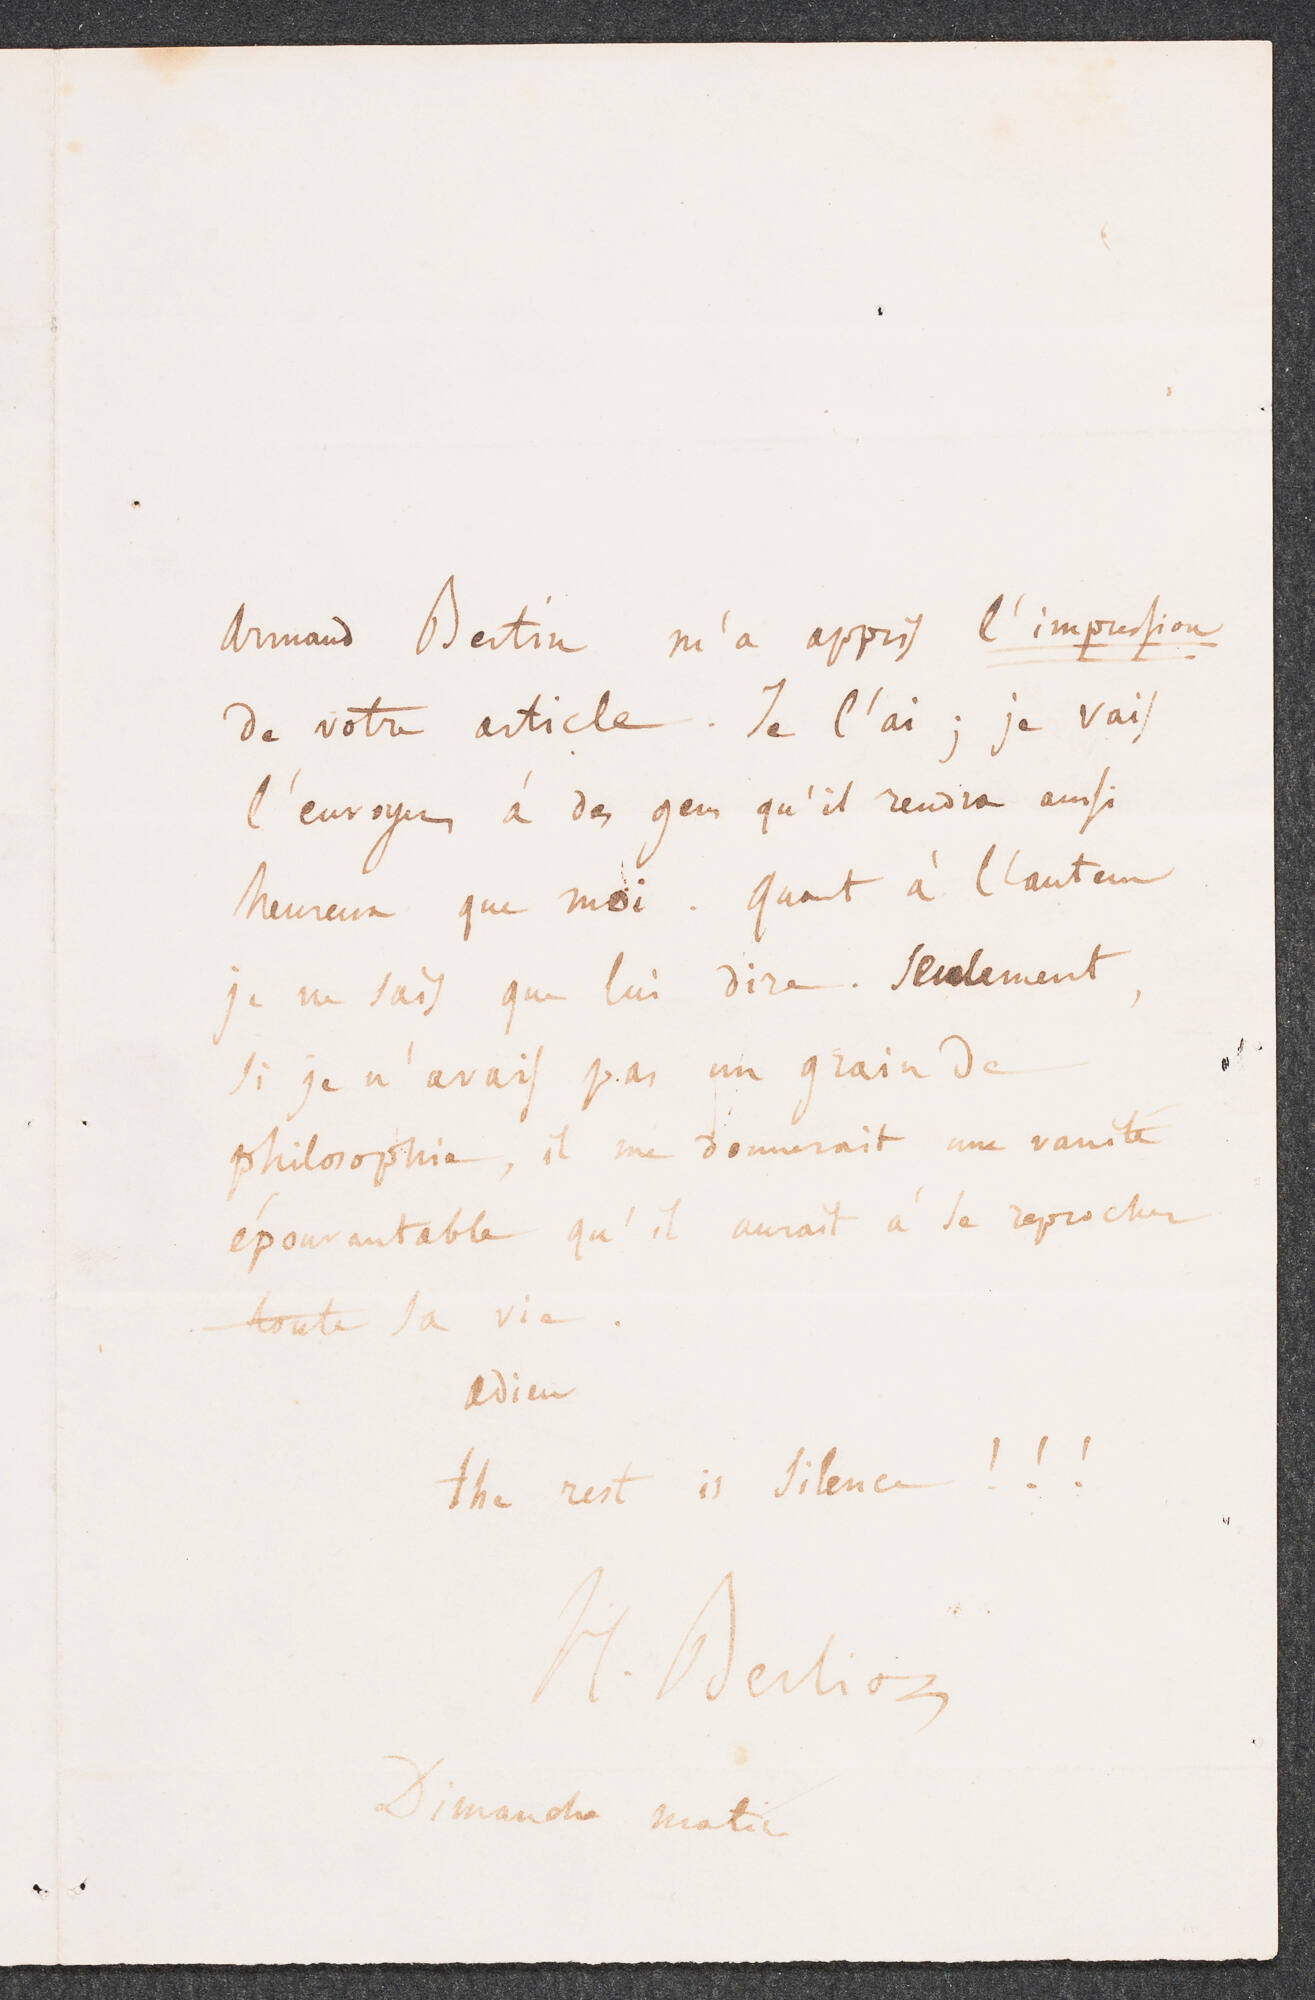 Armand Bertin m'a appris l'impression
de votre article. Je l'ai ; je vais
l'envoyer à des gens qu'il rendra aussi
heureux que moi. Quant à l'auteur
je ne sais que lui dire. Seulement,
si je n'avais pas un grain de
philosophie, il me donnerait une vanité
épouvantable qu'il aurait à se reprocher
toute sa vie.
adieu
the rest is silence !!!
H. Berlioz
Dimanche matin